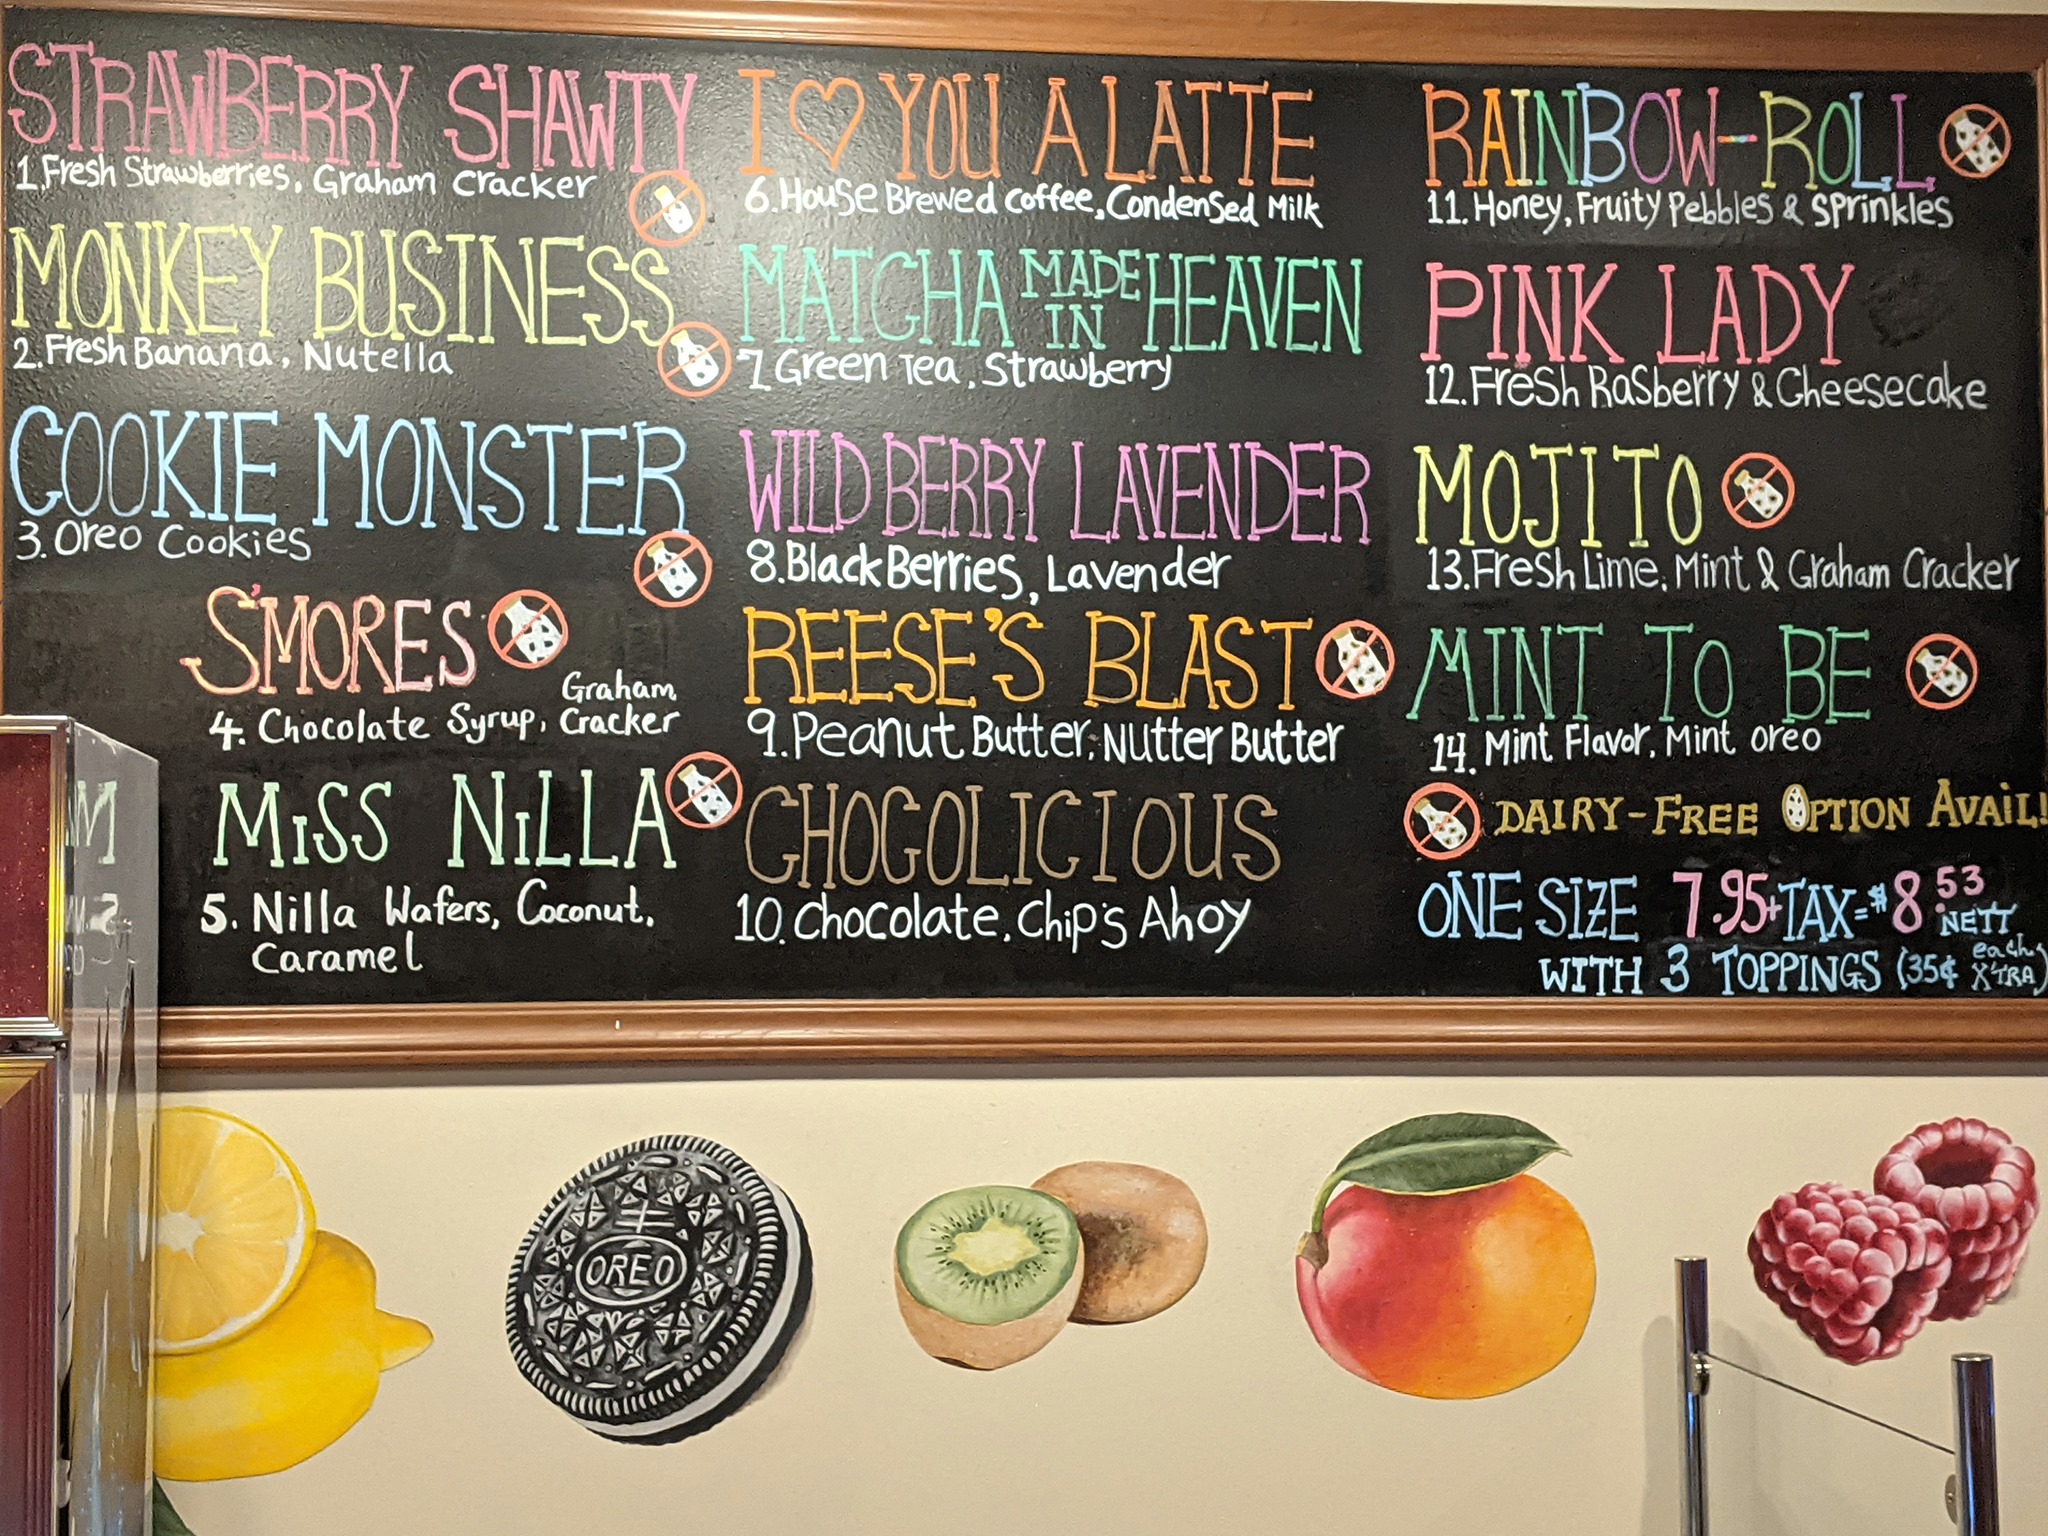 STRAWBERRY SHAWTY
1. Fresh Strawberries, Graham Cracker
MONKEY BUSINESS
2. Fresh Banana, Nutella
COOKIE MONSTER
3. Oreo Cookies
S'MORES
4. Chocolate Syrup, Graham Cracker
MiSS NiLLA
5. Nilla Wafers, Coconut,
Caramel
I ♡ YOU A LATTE
6. House Brewed Coffee, Condensed Milk
MATCHA MADE IN HEAVEN
7. Green Tea, Strawberry
WILD BERRY LAVENDER
8. Black Berries, Lavender
REESE'S BLAST
9. Peanut Butter, Nutter Butter
CHOCOLICIOUS
10. Chocolate, Chip's Ahoy
RAINBOW-ROLL
11. Honey, Fruity Pebbles & Sprinkles
PINK LADY
12. Fresh Rasberry & Cheesecake
MOJITO
13. Fresh Lime, Mint & Graham Cracker
MINT TO BE
14. Mint Flavor, Mint Oreo
DAIRY-FREE OPTION AVAiL!
ONE SIZE 7.95+TAX=$8.53 NETT
WITH 3 TOPPINGS (35¢ each X'TRA)
OREO